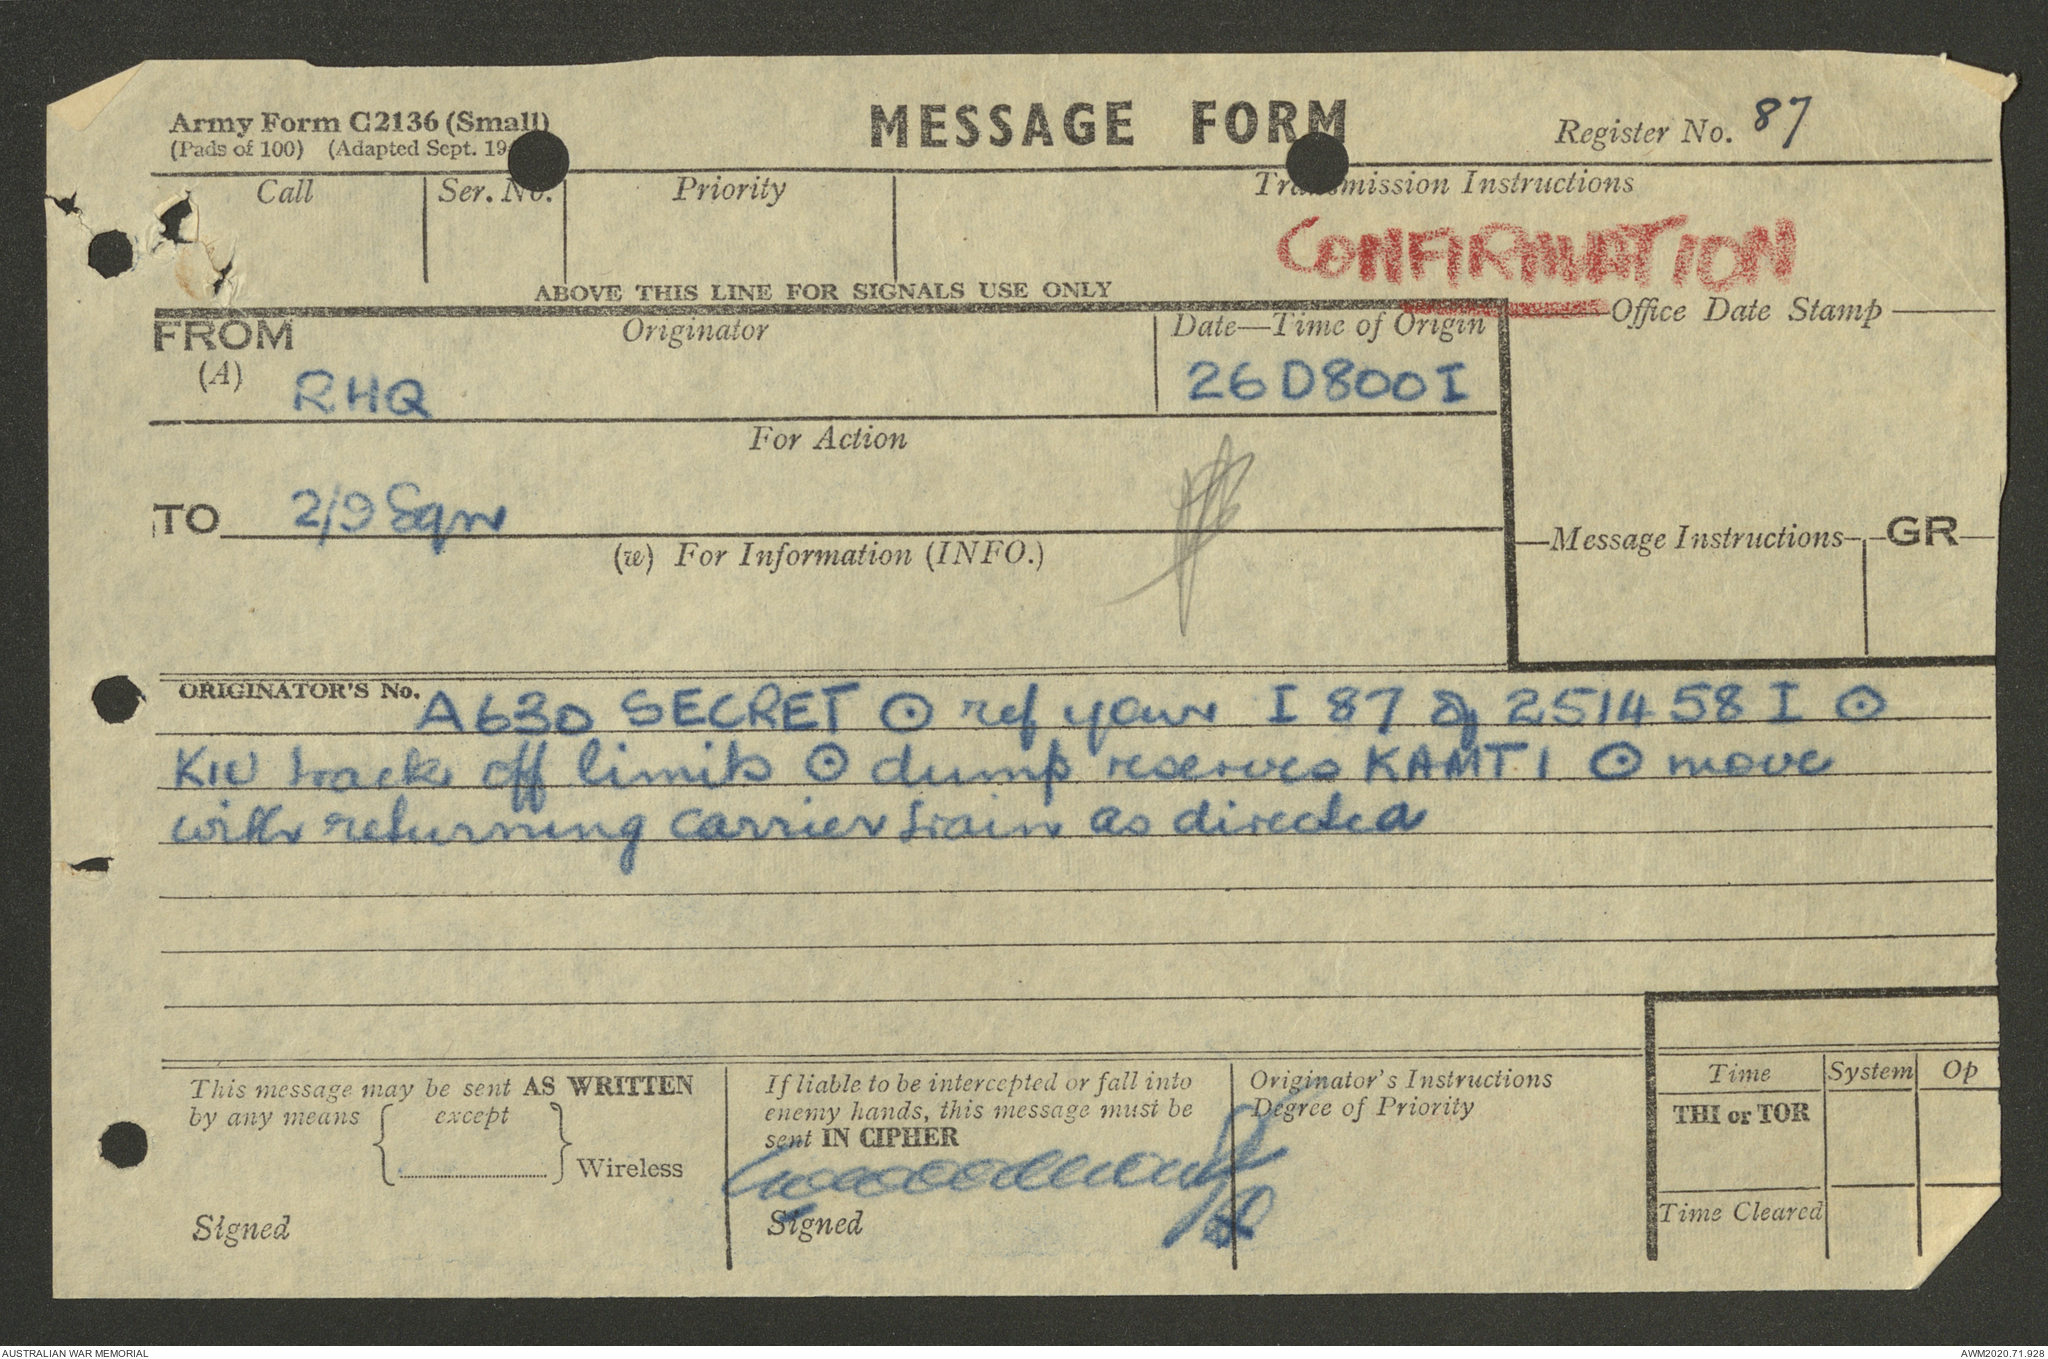 Army Form C2136 (Small)
(Pads of 100) (Adapted Sept. 19
MESSAGE FORM
Register No. 87
Call
Ser. No.
Priority
Transmission Instructions
CONFIRMATION
ABOVE THIS LINE FOR SIGNALS USE ONLY
FROM
(A)
Originator
RHQ
Date—Time of Origin
26 D800 I
Office Date Stamp
For Action
TO 2/9 Sqn
(w) For Information (INFO.)
Message Instructions GR
ORIGINATOR'S No. A630 SECRET ⊙ ref your I 87 of 251458 I ⊙
track off limits ⊙ dump reserves KAMTI ⊙ move
with returning carrier train as directed
This message may be sent AS WRITTEN
by any means except
Wireless
Signed
If liable to be intercepted or fall into
enemy hands, this message must be
sent IN CIPHER
Signed
Originator's Instructions
Degree of Priority
Time System Op
THI or TOR
Time Cleared
AUSTRALIAN WAR MEMORIAL
AWM2020.71.928